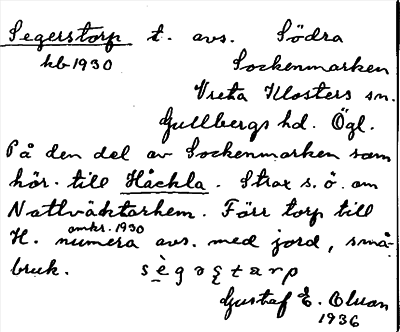 Segerstorp t. avs. Södra
kb 1930 Sockenmarken
Vreta Klosters sn.
Gullbergs hd. Ögl.
På den del av Sockenmarken som
hör. till Håckla. Strax s. ö. om
Nattväktarhem. Förr torp till
omkr. 1930
H. numera avs. med jord, små-
bruk. sègəʂtarp
Gustaf E. Olson
1936